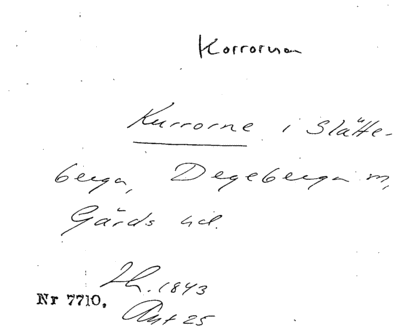 Korrorna
Kurrorne i Slätte-
berga, Degeberga m,
Gärds hd.
Lh. 1843
Akt 25
Nr 7710.